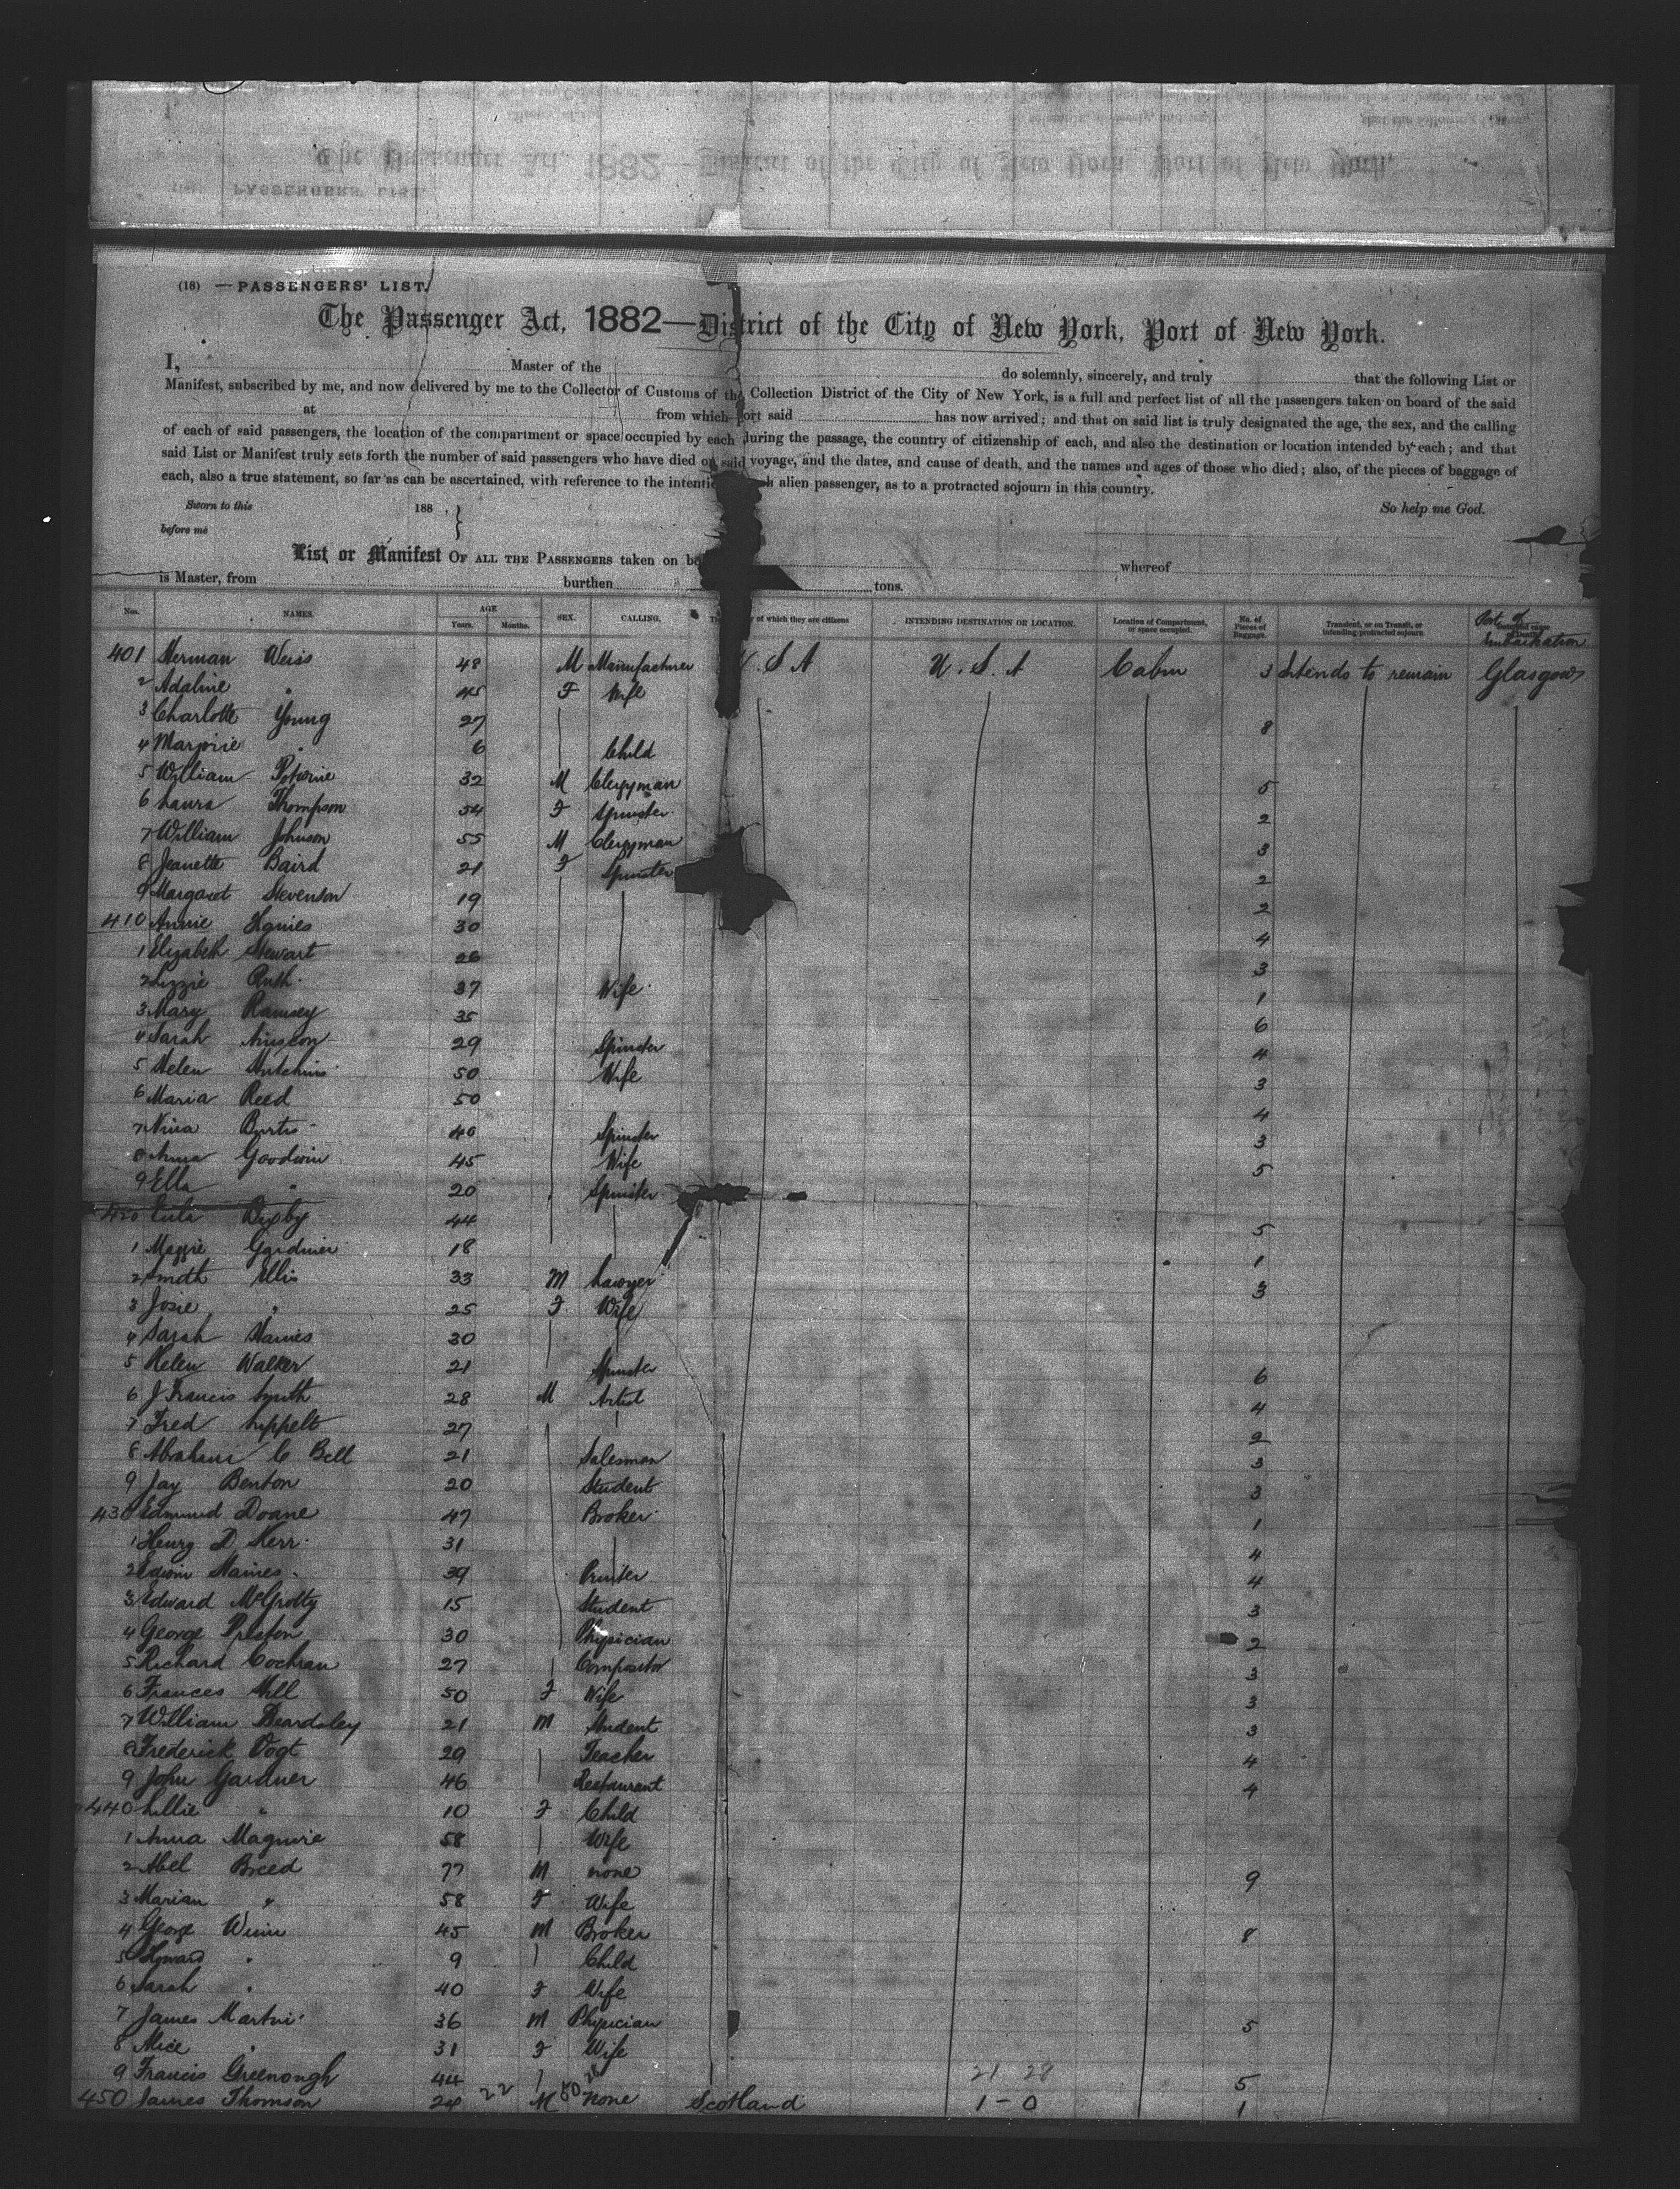 (18) — PASSENGERS' LIST.
The Passenger Act, 1882—District of the City of New York, Port of New York.
I, Master of the do solemnly, sincerely, and truly that the following List or
Manifest, subscribed by me, and now delivered by me to the Collector of Customs of the Collection District of the City of New York, is a full and perfect list of all the passengers taken on board of the said
at from which port said has now arrived; and that on said list is truly designated the age, the sex, and the calling
of each of said passengers, the location of the compartment or space occupied by each during the passage, the country of citizenship of each, and also the destination or location intended by each; and that
said List or Manifest truly sets forth the number of said passengers who have died on said voyage, and the dates, and cause of death, and the names and ages of those who died; also, of the pieces of baggage of
each, also a true statement, so far as can be ascertained, with reference to the intenti h alien passenger, as to a protracted sojourn in this country.
Sworn to this 188 , } So help me God.
before me
List or Manifest OF ALL THE PASSENGERS taken on bo whereof
is Master, from burthen tons.
Nos. NAMES. AGE Years. Months. SEX. CALLING. of which they are citizens INTENDING DESTINATION OR LOCATION. Location of Compartment, or space occupied. No. of Pieces of Baggage. Transient, or on Transit, or intending protracted sojourn. Port of Embarkation
401 Herman Weiss 48 M Manufacturer U.S.A U.S.A Cabin 3 Intends to remain Glasgow
2 Adaline " 45 F Wife
3 Charlotte Young 27 8
4 Marjorie " 6 Child
5 William 32 M Clergyman 5
6 Laura Thompson 54 F Spinster 2
7 William Johnson 55 M Clergyman 3
8 Jeanette Baird 21 F Spinster 2
9 Margaret Stevenson 19 2
410 Annie 30 4
1 Elizabeth Stewart 26 3
2 Lizzie Ruth 37 Wife 1
3 Mary Ramsey 35 6
4 Sarah 29 Spinster 4
5 Helen Hutchins 50 Wife 3
6 Maria Reed 50 4
7 Nina Burtis 40 Spinster 3
8 Anna Goodwin 45 Wife 5
9 Ella " 20 Spinster
420 Bixby 44 5
1 Maggie Gardiner 18 1
2 Smith Ellis 33 M Lawyer 3
3 Josie " 25 F Wife
4 Sarah Haines 30
5 Helen Walker 21 Spinster 6
6 J Francis Smith 28 M Artist 4
7 Fred Lippelt 27 2
8 Abraham C Bell 21 Salesman 3
9 Jay Benton 20 Student 3
430 Edmund Doane 47 Broker 1
1 Henry D Kerr 31 4
2 Edwin Haines 39 Printer 4
3 Edward McGrotty 15 Student 3
4 George Preston 30 Physician 2
5 Richard Cochran 27 Compositor 3
6 Frances Hill 50 F Wife 3
7 William Beardsley 21 M Student 3
8 Frederick Vogt 29 Teacher 4
9 John Gardner 46 Restaurant 4
440 Lillie " 10 F Child
1 Anna Maguire 58 Wife
2 Abel Breed 77 M none 9
3 Marian " 58 F Wife
4 George Winn 45 M Broker 8
5 Howard " 9 Child
6 Sarah " 40 F Wife
7 James Martin 36 M Physician 5
8 Alice " 31 F Wife
9 Francis Greenough 44 21 28 5
450 James Thomson 24 22 M none Scotland 1-0 1